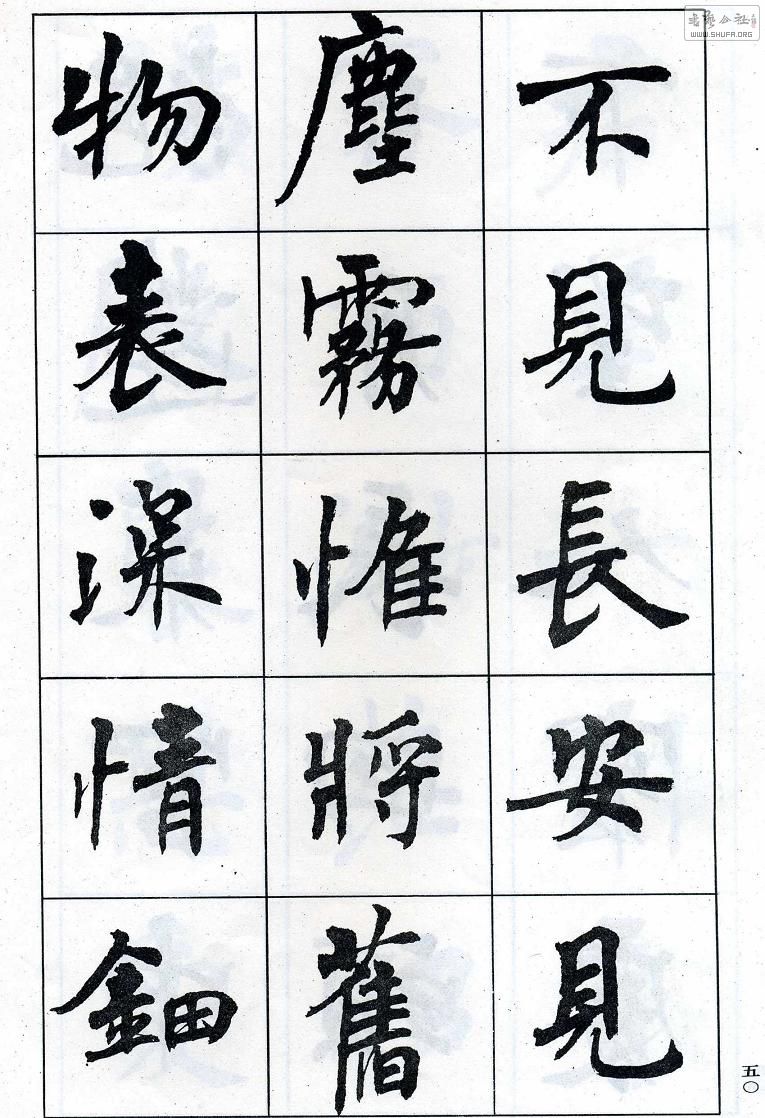 不見長安見
塵霧惟將舊
物表深情鈿
五〇
书艺公社
WWW.SHUFA.ORG